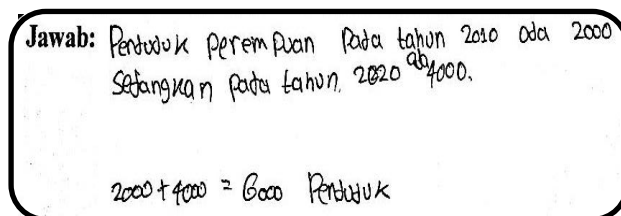 Jawab: Penduduk perempuan Pada tahun 2010 ada 2000
Sedangkan pada tahun 2020 ada 4000.
2000 + 4000 = 6000 Penduduk